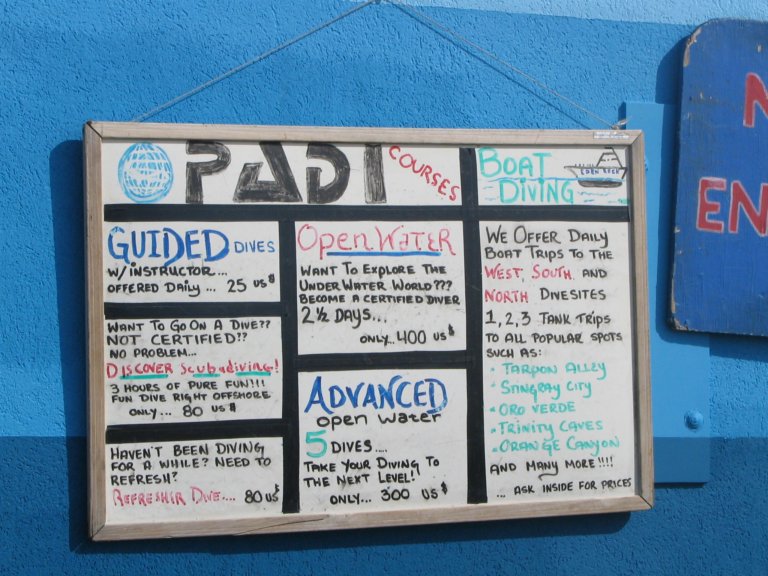 PADI COURSES
GUIDED DIVES
W/ INSTRUCTOR...
OFFERED DAILY ... 25 US$
WANT TO GO ON A DIVE??
NOT CERTIFIED!?
NO PROBLEM...
DISCOVER Scubadiving!
3 HOURS OF PURE FUN!!!
FUN DIVE RIGHT OFFSHORE
ONLY... 80 US$
HAVEN'T BEEN DIVING
FOR A WHILE? NEED TO
REFRESH?
REFRESHIR DIVE.... 80 US
Open WATER
WANT TO EXPLORE THE
UNDER WATER WORLD???
BECOME A CERTIFIED DIVER
2½ DAYS...
ONLY... 400 US$
ADVANCED
open water
5 DIVES ....
TAKE YOUR DIVING TO
THE NEXT LEVEL!!
ONLY... 300 US$
BOAT
DIVING
EDEN ROCK
WE OFFER DAILY
BOAT TRIPS TO THE
WEST, SOUTH, AND
NORTH DIVESITES
1, 2, 3 TANK TRIPS
TO ALL POPULAR SPOTS
SUCH AS:
• TARPON ALLEY
• STINGRAY CITY
• ORO VERDE
• TRINITY CAVES
• ORANGE CANYON
AND MANY MORE!!!!
... ASK INSIDE FOR PRICES
N
EN